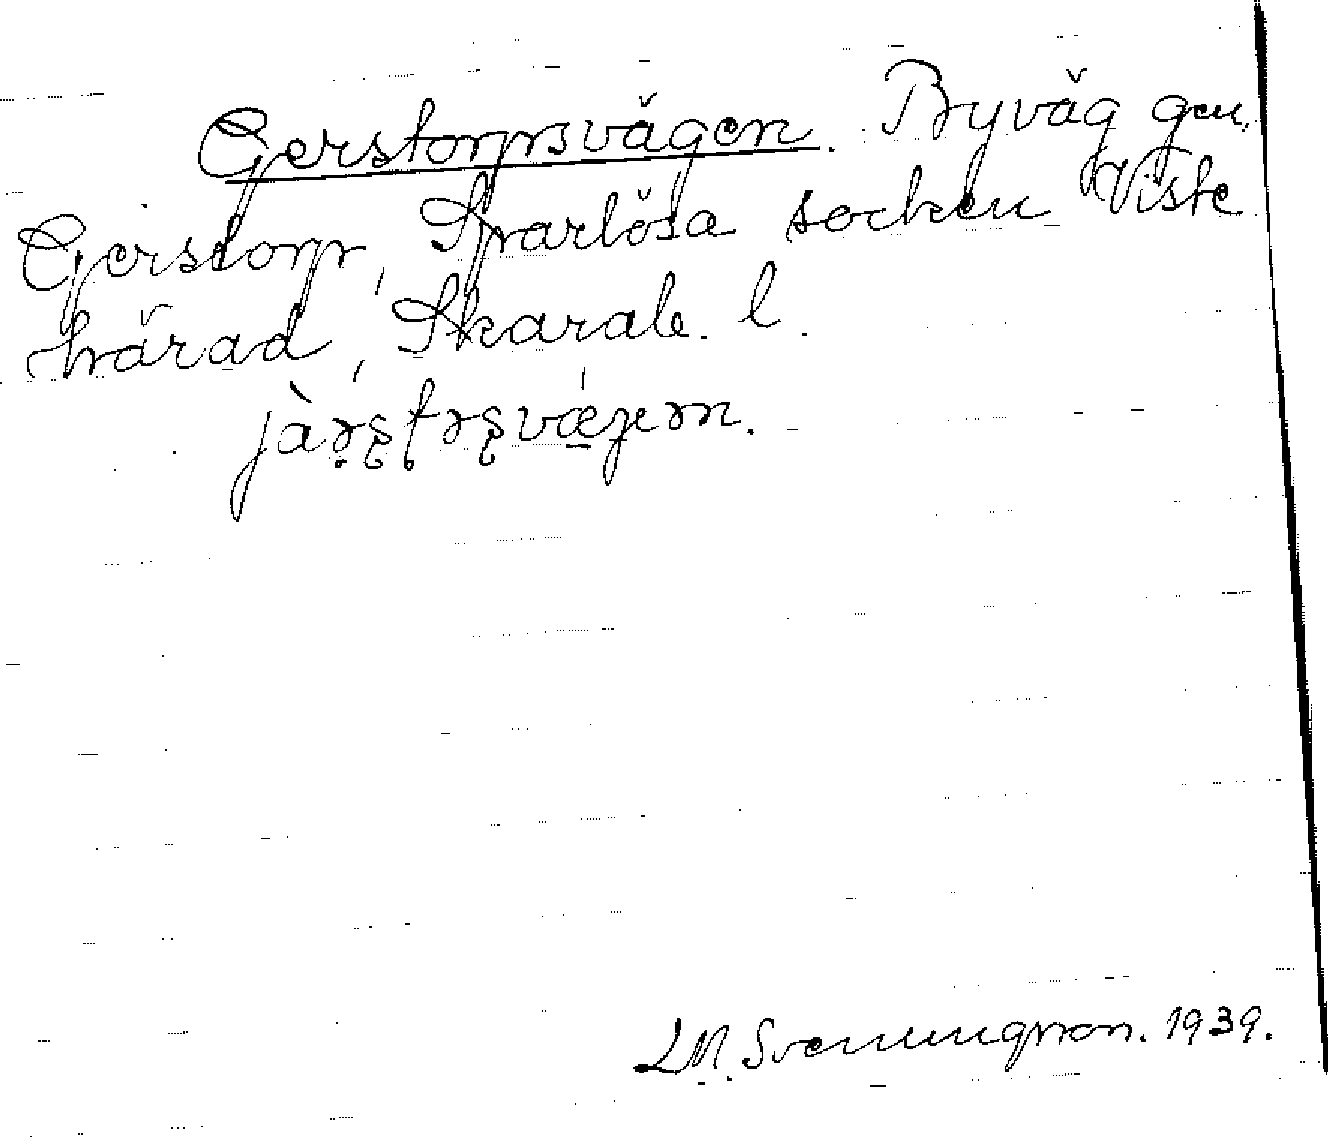 Gerstorpsvägen. Byväg gen.
Gerstorp, Sparlösa socken Viste
härad, Skarab. l.
jàrstrsvǽgen.
L.M. Svenungsson. 1939.